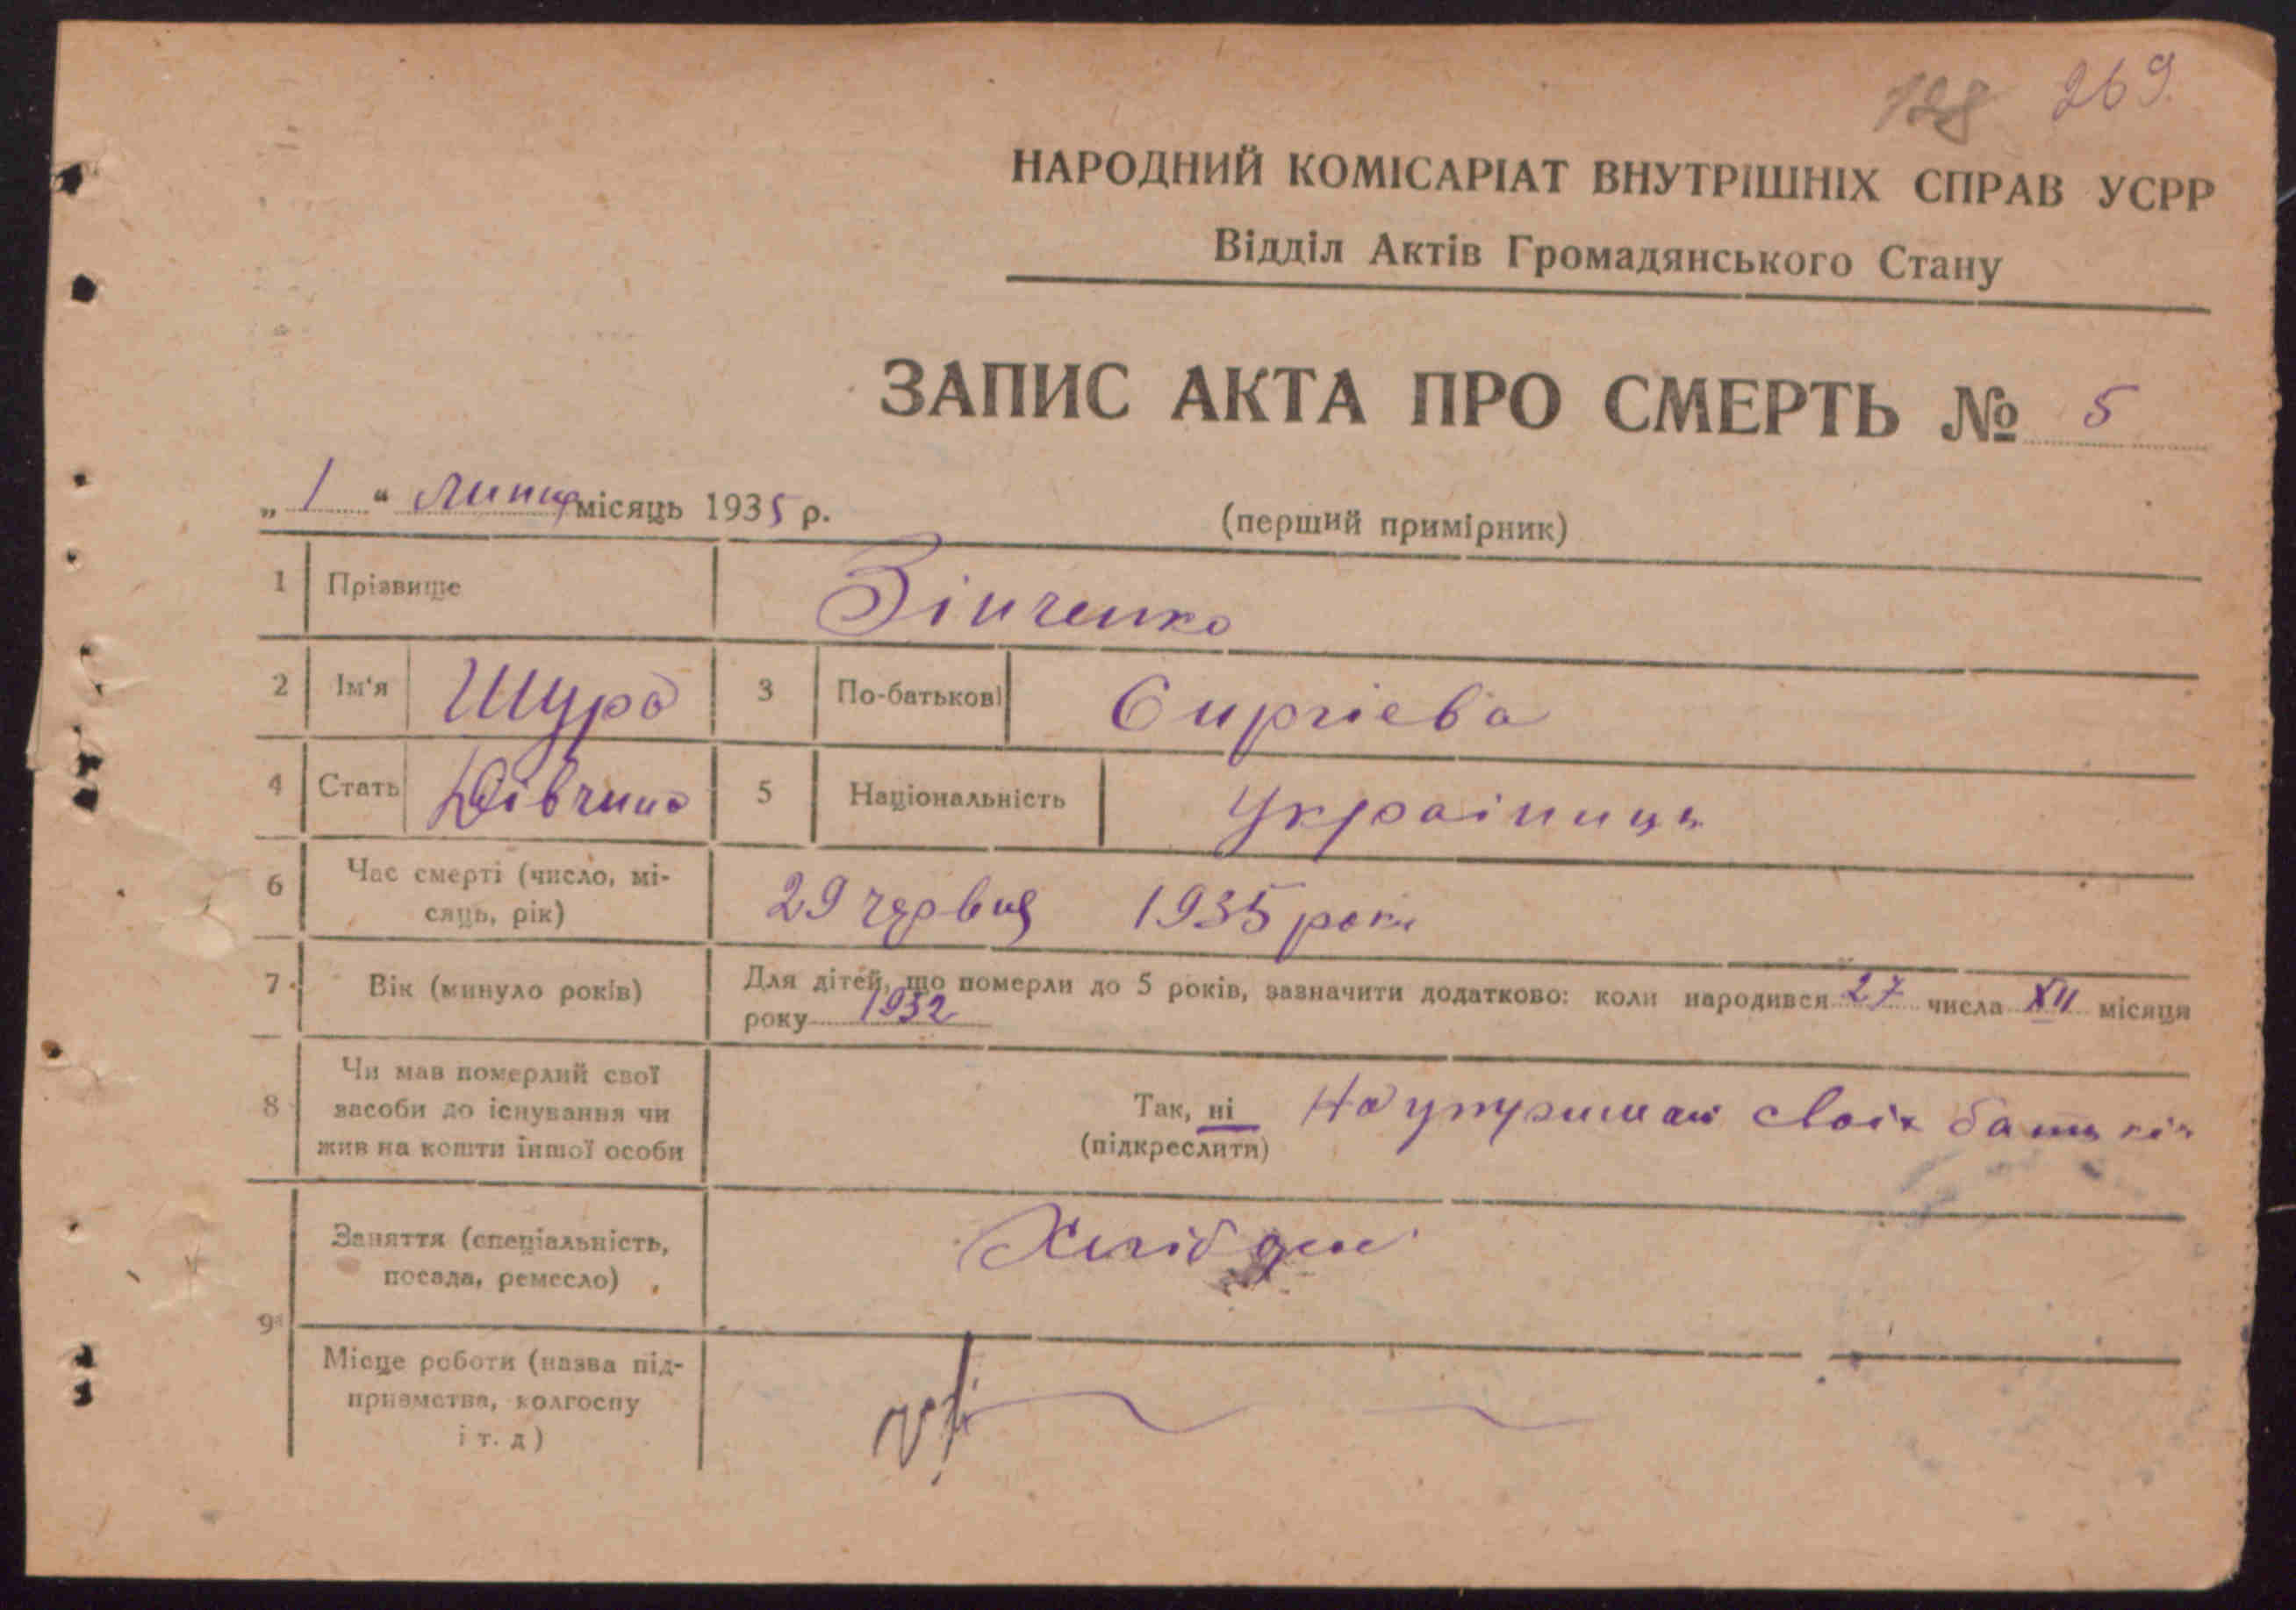 128 269
НАРОДНИЙ КОМІСАРІАТ ВНУТРІШНІХ СПРАВ УСРР
Відділ Актів Громадянського Стану
ЗАПИС АКТА ПРО СМЕРТЬ № 5
„ 1 “ Липця місяць 1935 р.
(перший примірник)
1 Прізвище Зінченко
2 Ім'я Шура 3 По-батькові Сиргієва
4 Стать Дівчина 5 Національність Україниць
6 Час смерті (число, мі-
сяць, рік) 29 червця 1935 року
7 Вік (минуло років) Для дітей, що померли до 5 років, зазначити додатково: коли народився 27 числа XII місяця
року 1932
8 Чи мав померлий свої
засоби до існування чи
жив на кошти іншої особи
Так, ні На утриман своіх батьків
(підкреслити)
9 Заняття (спеціальність,
посада, ремесло) Хлібороб
Місце роботи (назва під-
приємства, колгоспу
і т. д)